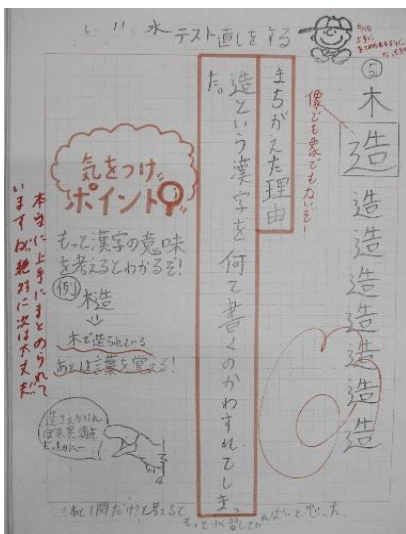 水 テスト直しをする
⑤
木造
造
造
造
造
造
造
造
像でも象でもないぞ!
まちがえた理由
造という漢字を何て書くのかわすれてしまっ
た。
気をつけ
ポイント
もっと漢字の意味
を考えるとわかるぞ!
例
木造
↓
木で造られている
あとは言葉を覚える!
本当に上手にまとめられて
いますね。絶対に次は大丈夫だ